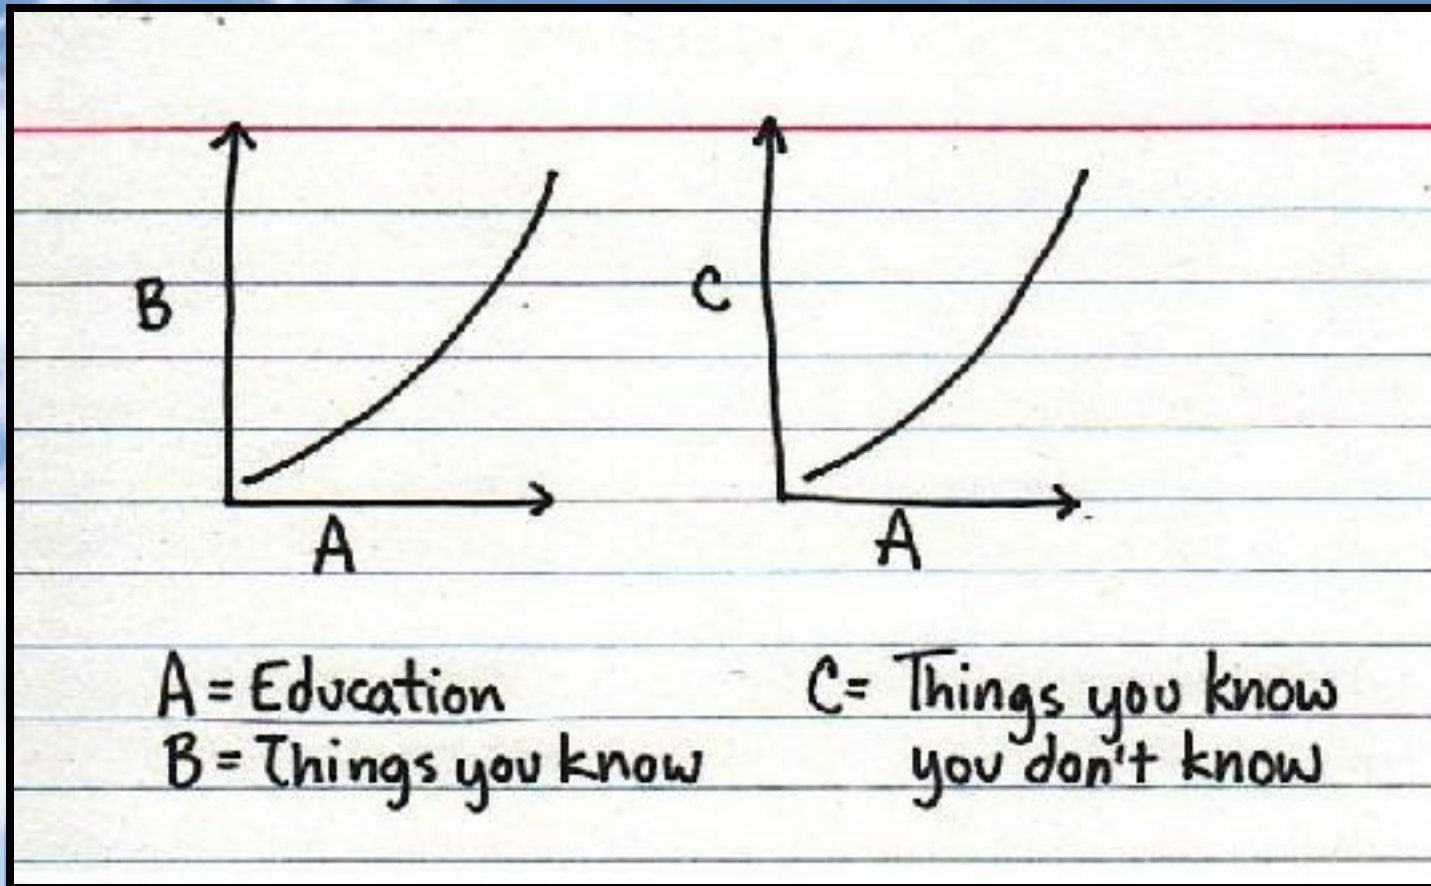 B
C
A
A
A = Education
B = Things you know
C = Things you know
you don't know